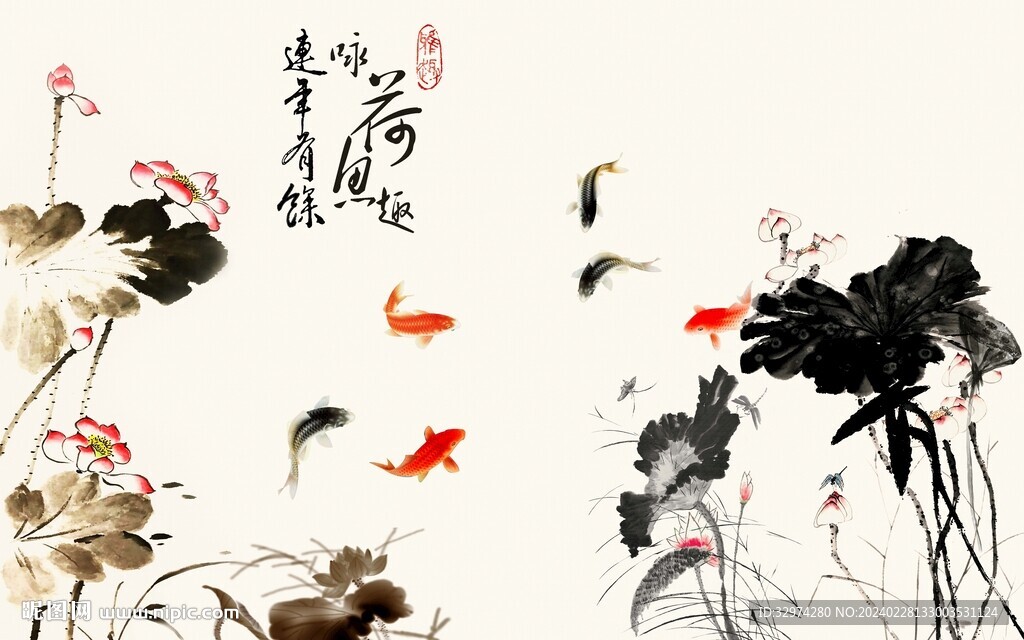 雅趣
咏荷思趣
連年有餘
昵图网 www.nipic.com
ID:32974280 NO:20240228133003531124